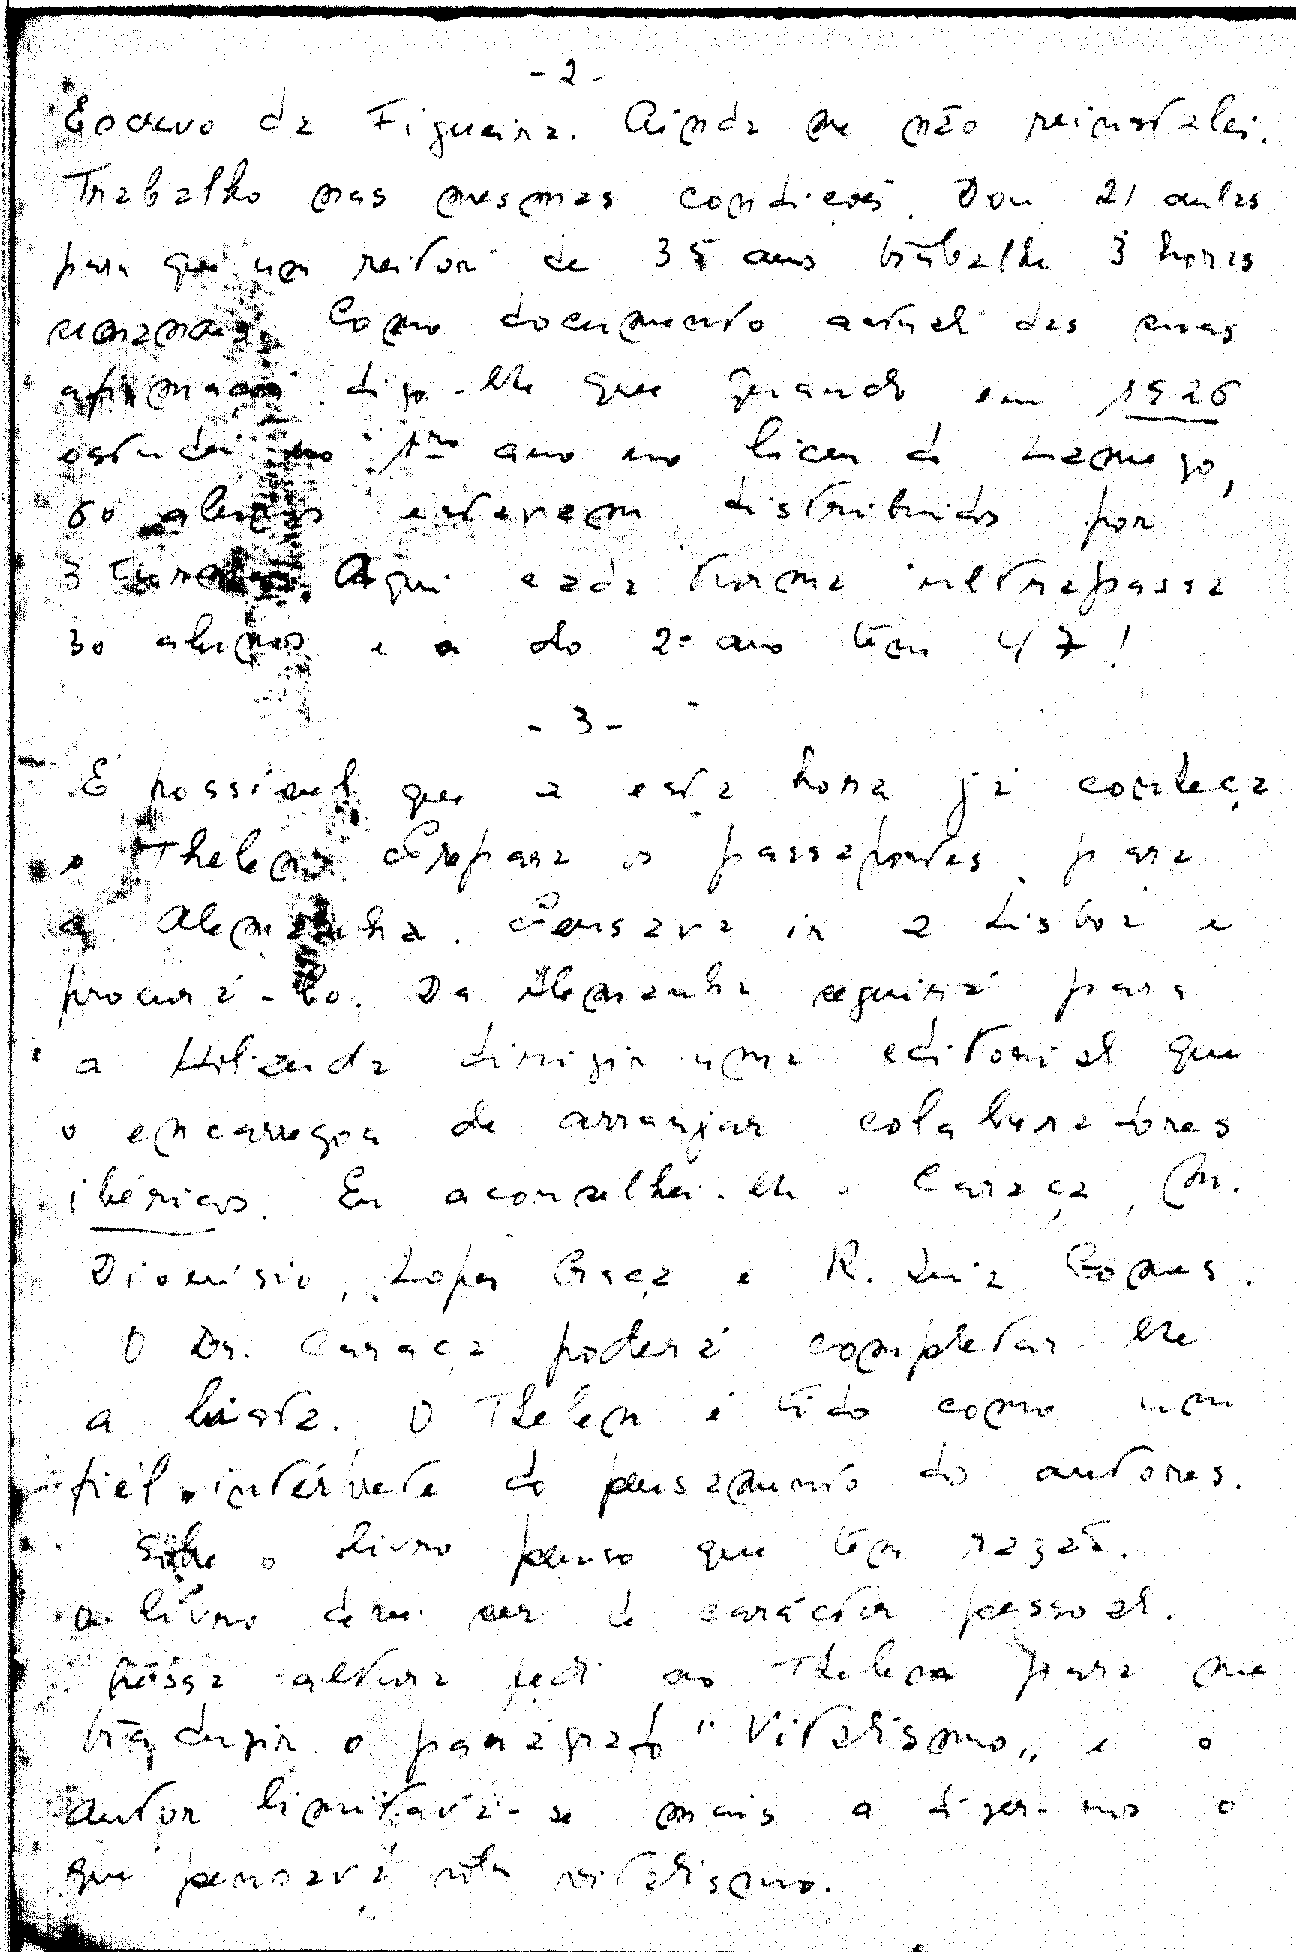 - 2 -
Escrevo da Figueira. Ainda me não reinstalei.
Trabalho nas mesmas condições. Dou 21 aulas
para que um reitor de 35 anos trabalhe 3 horas
semanais. Como documento actual das suas
afirmações digo-lhe que quando em 1926
estudei no 1ro ano no liceu de Lamego,
60 alunos estavam distribuidos por
3 turmas. Aqui cada turma ultrapassa
30 alunos e a do 2º ano tem 47!
- 3 -
É possível que a esta hora já conheça
o Thelen. Prepara os passaportes para
a Alemanha. Pensava ir a Lisboa e
procurá-lo. Da Alemanha seguirá para
a Holanda dirigir uma editorial que
o encarregou de arranjar colaboradores
ibéricos. Eu aconselhei-lhe o Caraça, M.
Dionisio, Lopes Graça e R. Luiz Gomes.
O Dr. Caraça poderá completar lhe
a lista. O Thelen é tido como um
fiel intérprete do pensamento dos autores.
Sobre o livro penso que tem razão.
O livro deve ser de carácter pessoal.
Nessa altura pedi ao Thelen para me
traduzir o parágrafo "Vitalismo" e o
autor limitava-se mais a dizer-nos o
que pensava vitalismo.